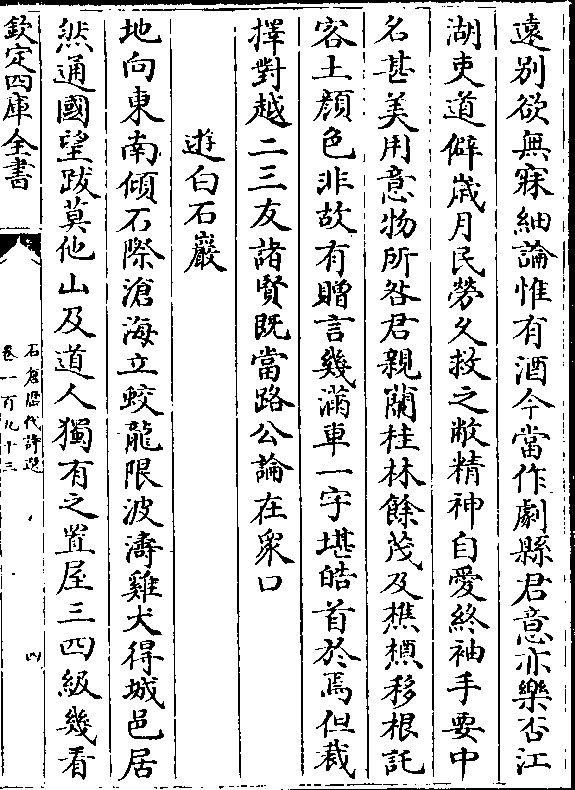 遠别欲無寐細論惟有酒今當作劇縣君意亦樂否江
湖吏道僻嵗月民勞久捄之敝精神自愛終袖手要中
名甚美用意物所咎君親闗桂林餘茂及樵槱移根託
客土顔色非故有贈言幾滿車一字堪皓首於焉但裁
擇對越二三友諸賢既當路公論在衆口
遊白石巖
地向東南傾石際滄海立蛟龍限波濤雞犬得城邑居
然通國望跋莫他山及道人獨有之置屋三四級幾看
欽定四庫全書
石倉歴代詩選
卷一百九十三
四